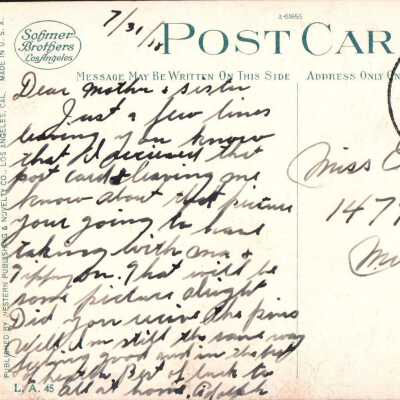 7/31/18
Sofmer Brothers Los Angeles
A-69655
POST CAR
MESSAGE MAY BE WRITTEN ON THIS SIDE
ADDRESS ONLY ON
MADE IN U.S.A.
PUBLISHED BY WESTERN PUBLISHING & NOVELTY CO., LOS ANGELES, CAL.
Dear Mother & sister
Just a few lines
leaving you know
that I'd received the
post card & leaving me
know about that picture
your going to have
taking with ma &
on. That will be
some picture alright
Did you receive the pins
Well I'm still the same way
feeling good and in the best
of health. Best of luck to
all at home. Adolph
L. A. 45
Miss
147